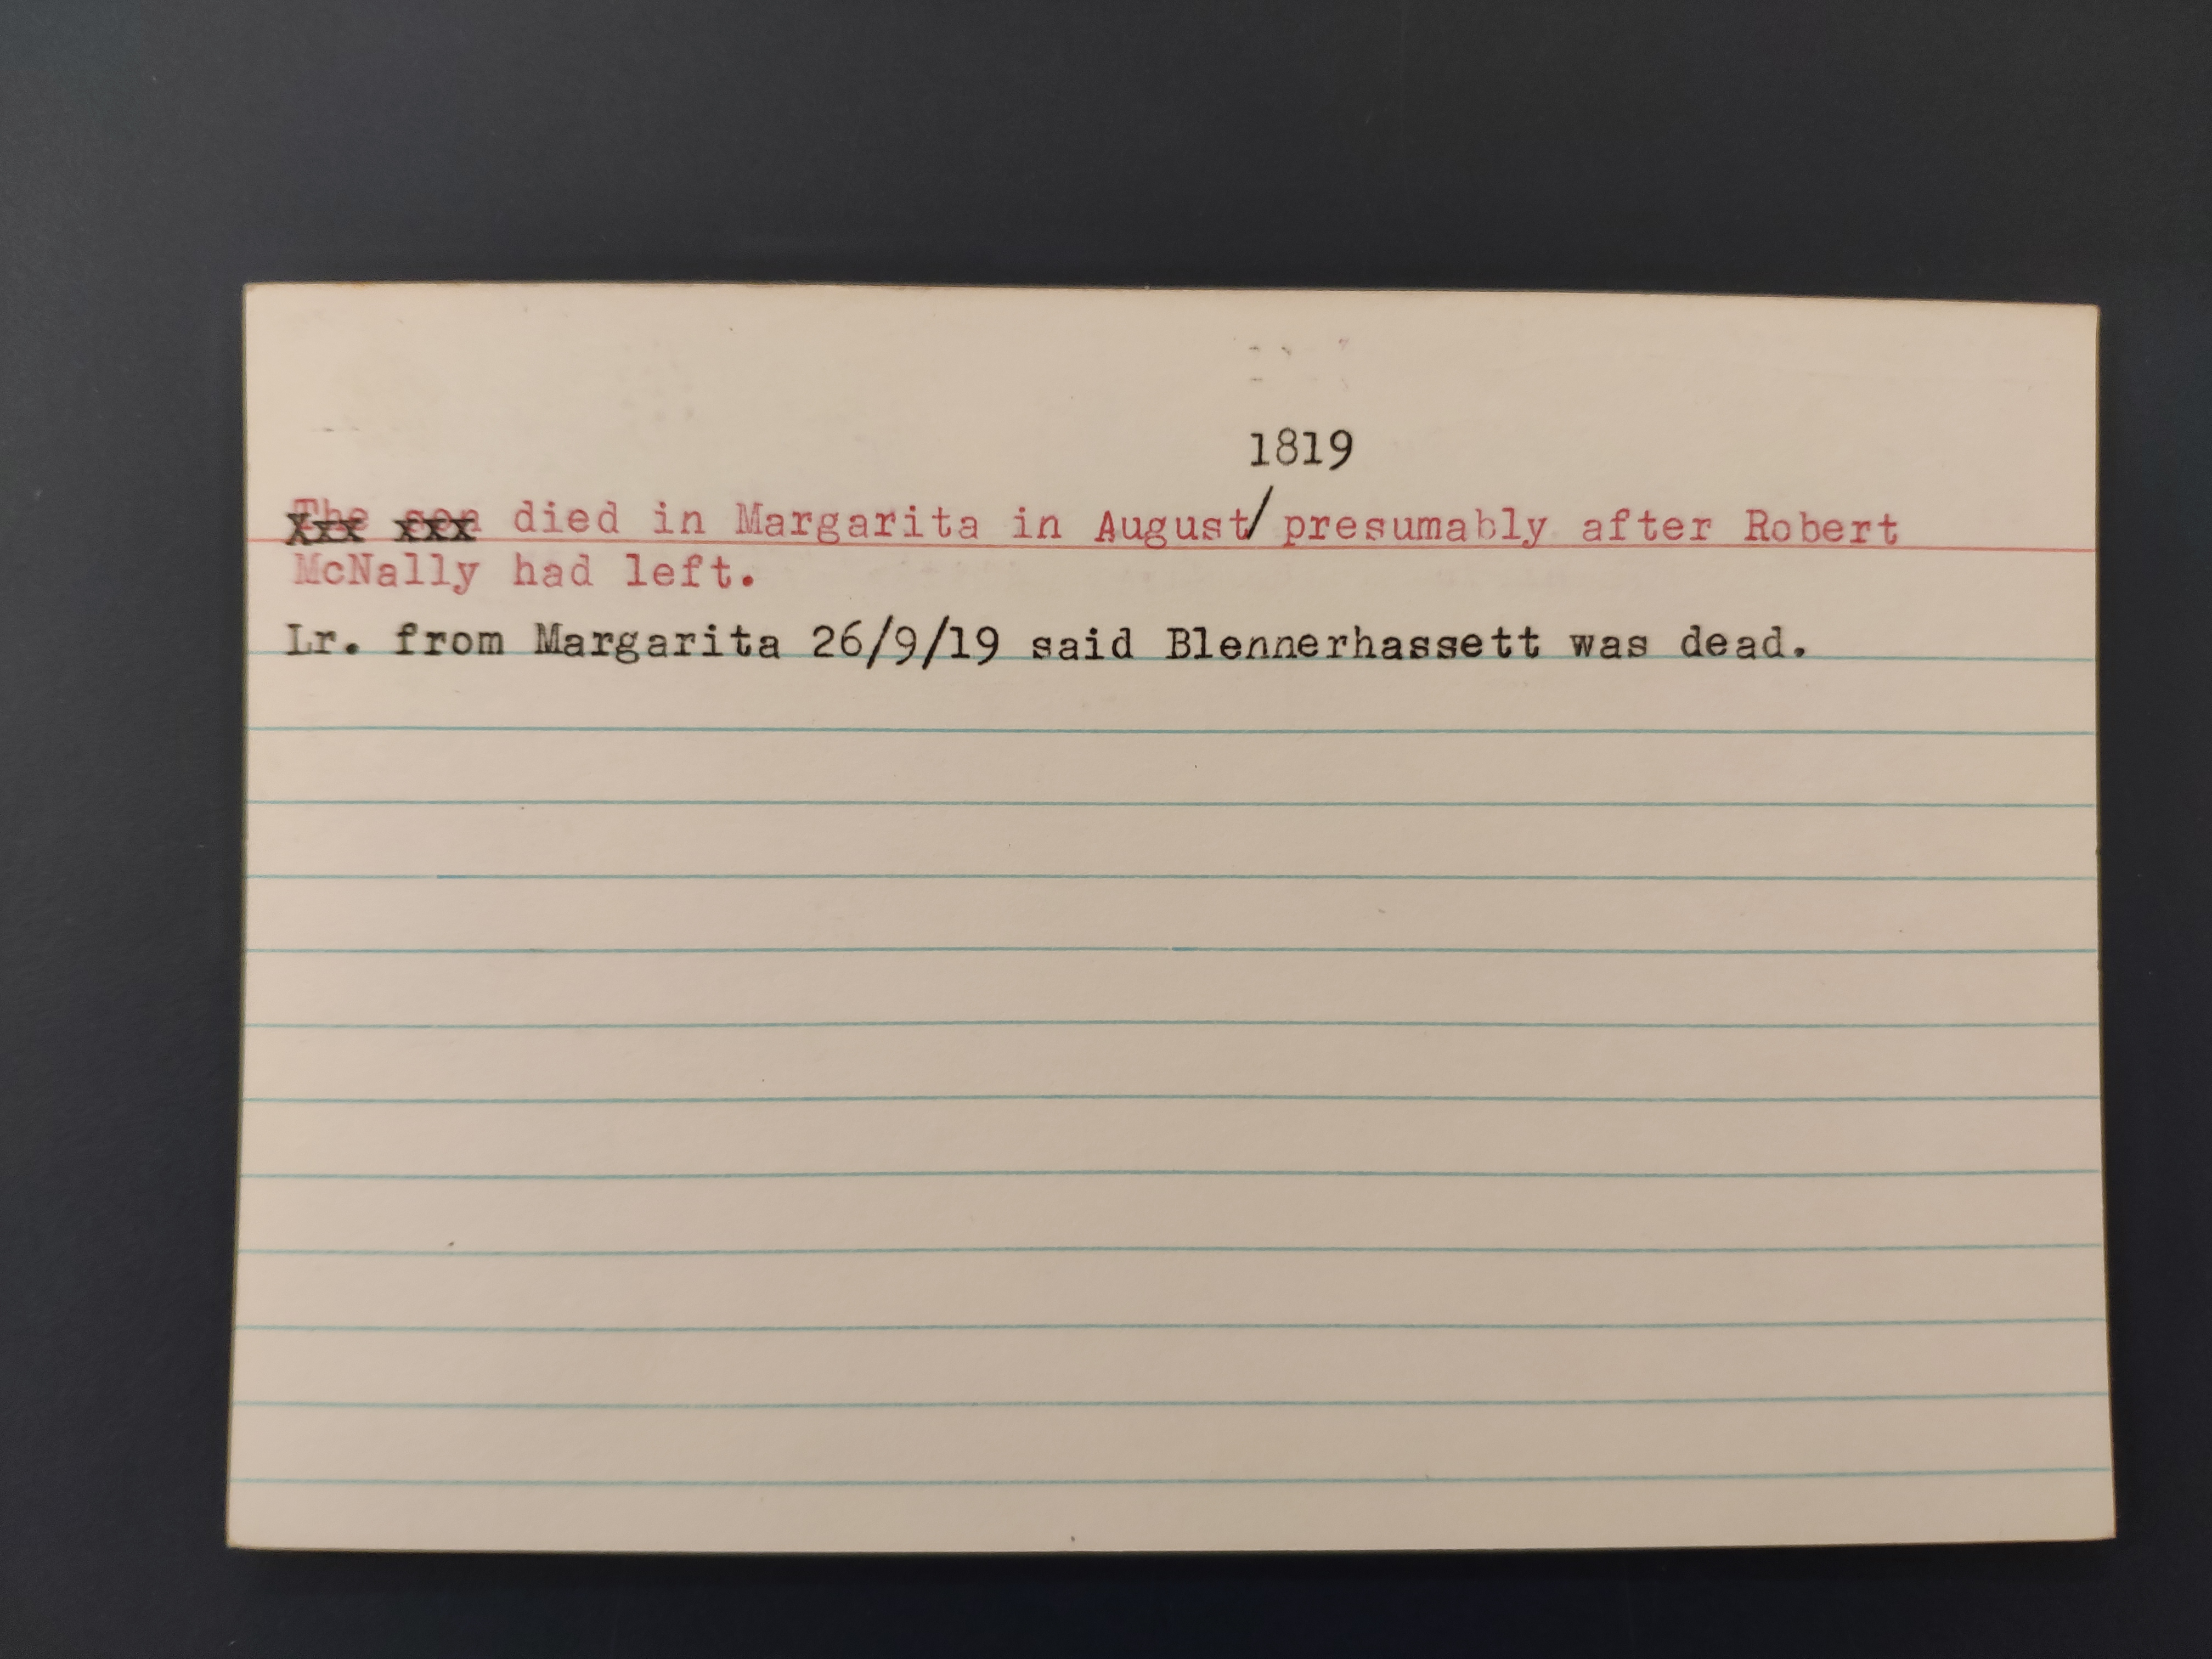 1819
The son died in Margarita in August/presumably after Robert
McNally had left.
Lr. from Margarita 26/9/19 said Blennerhassett was dead.